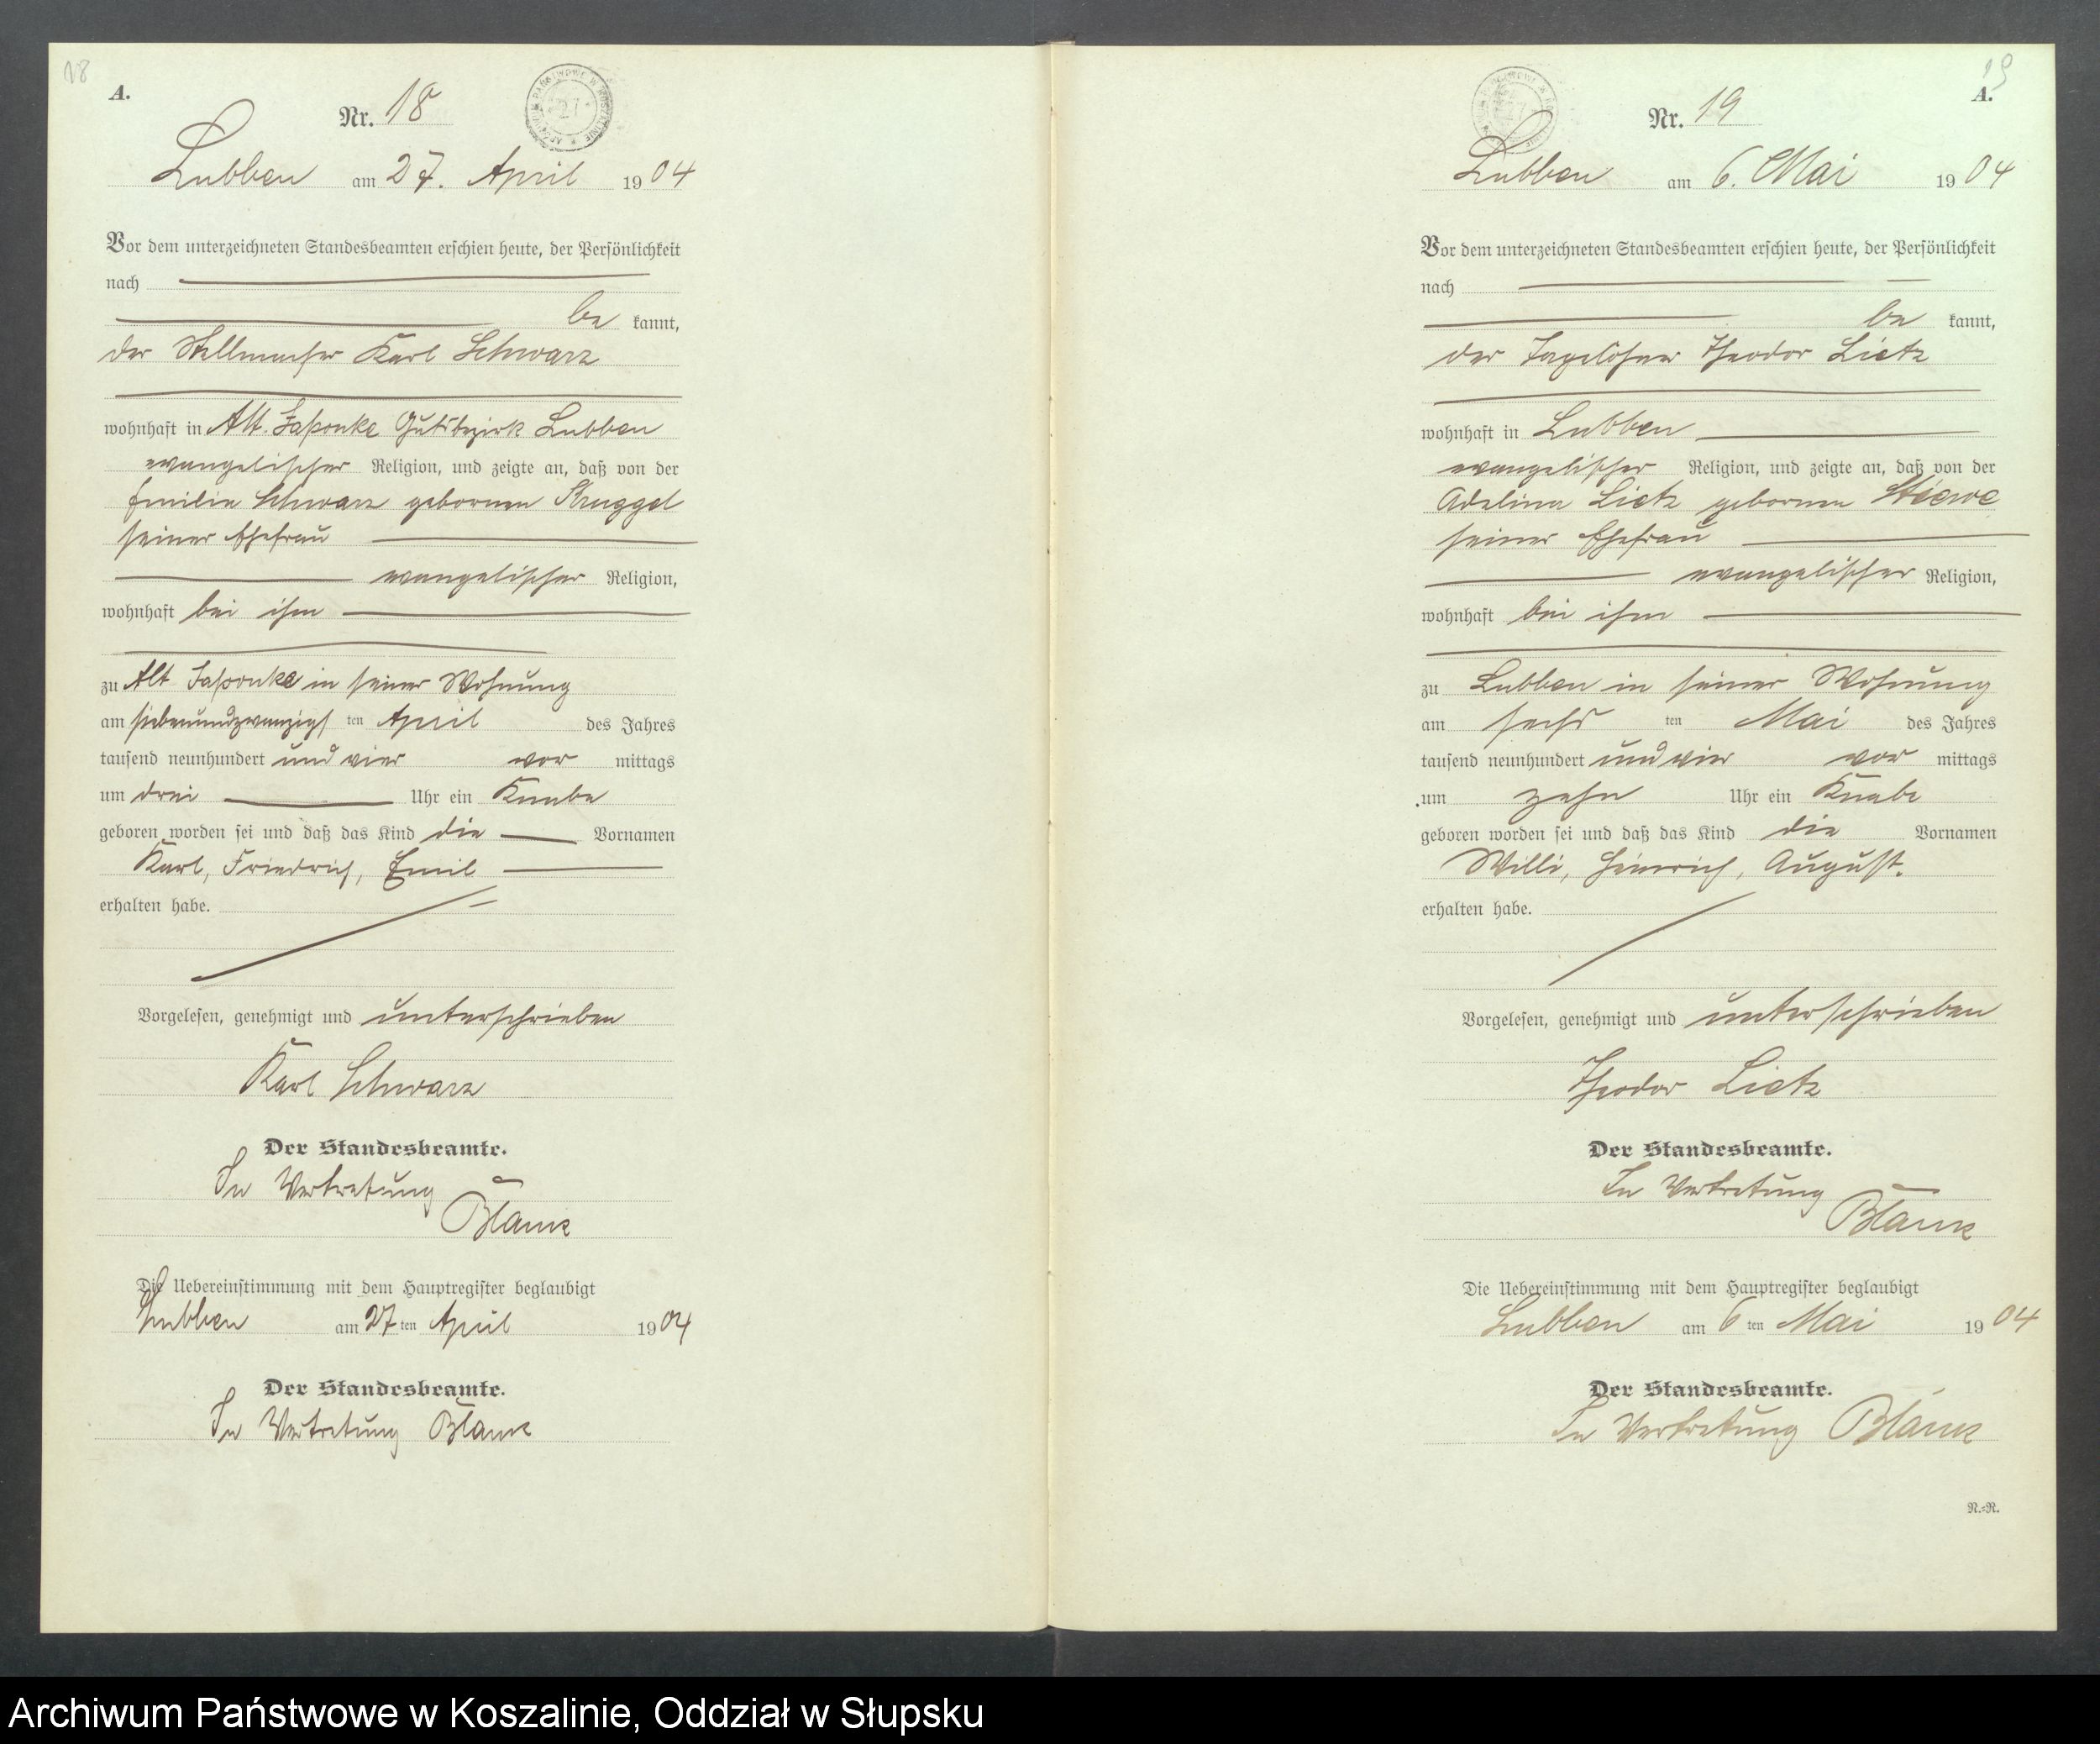 18
A.
Nr. 18
Lubben am 27. April 1904
Vor dem unterzeichneten Standesbeamten erschien heute, der Persönlichkeit
nach
be kannt,
der Stellmacher Karl Schwarz
wohnhaft in Alt. Jasonke Gutsbezirk Lubben
evangelischer Religion, und zeigte an, daß von der
Emilie Schwarz gebornen Kruggel
seiner Ehefrau
evangelischer Religion,
wohnhaft bei ihm
zu Alt Jasonke in seiner Wohnung
am siebenundzwanzigsten April des Jahres
tausend neunhundert und vier vor mittags
um drei Uhr ein Knabe
geboren worden sei und daß das Kind die Vornamen
Karl, Friedrich, Emil
erhalten habe.
Vorgelesen, genehmigt und unterschrieben
Karl Schwarz
Der Standesbeamte.
In Vertretung
Blank
Die Uebereinstimmung mit dem Hauptregister beglaubigt
Lubben am 27ten April 1904
Der Standesbeamte.
In Vertretung Blank
19
A.
Nr. 19
Lubben am 6. Mai 1904
Vor dem unterzeichneten Standesbeamten erschien heute, der Persönlichkeit
nach
be kannt,
der Tagelöhner Theodor Lietz
wohnhaft in Lubben
evangelischer Religion, und zeigte an, daß von der
Adeline Lietz gebornen Stéewe
seiner Ehefrau
evangelischer Religion,
wohnhaft bei ihm
zu Lubben in seiner Wohnung
am sechs ten Mai des Jahres
tausend neunhundert und vier vor mittags
um zehn Uhr ein Knabe
geboren worden sei und daß das Kind die Vornamen
Willi, Heinrich, August.
erhalten habe.
Vorgelesen, genehmigt und unterschrieben
Theodor Lietz
Der Standesbeamte.
In Vertretung
Blank
Die Uebereinstimmung mit dem Hauptregister beglaubigt
Lubben am 6ten Mai 1904
Der Standesbeamte.
In Vertretung Blank
N.=R.
Archiwum Państwowe w Koszalinie, Oddział w Słupsku